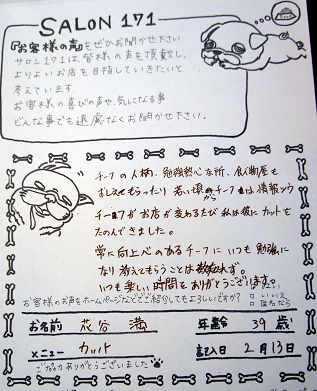 SALON 171
『お客様の声』をぜひお聞かせ下さい
サロン171は、皆様の声を頂戴し
よりよいお店を目指していきたいと
考えています。
お客様の喜びの声や、気になる事
どんな事でも遠慮なくお聞かせ下さい。
チーフの人柄、勉強熱心な所、食べ物屋も
おしえてもらったり 若い頃からチーフは情報ツウ
チーフがお店が変わるたび 私は彼にカットを
たのんできました。
常に向上心のあるチーフに いつも 勉強に
なり 教えてもらうことは数知れず。
いつも楽しい時間を ありがとうございます。
お客様のお声をホームページなどでご紹介してもよろしいですか? □いいえ
□匿名なら
お名前 花谷 満 年齢 39歳
メニュー カット 記入日 2月13日
ご協力ありがとうございました